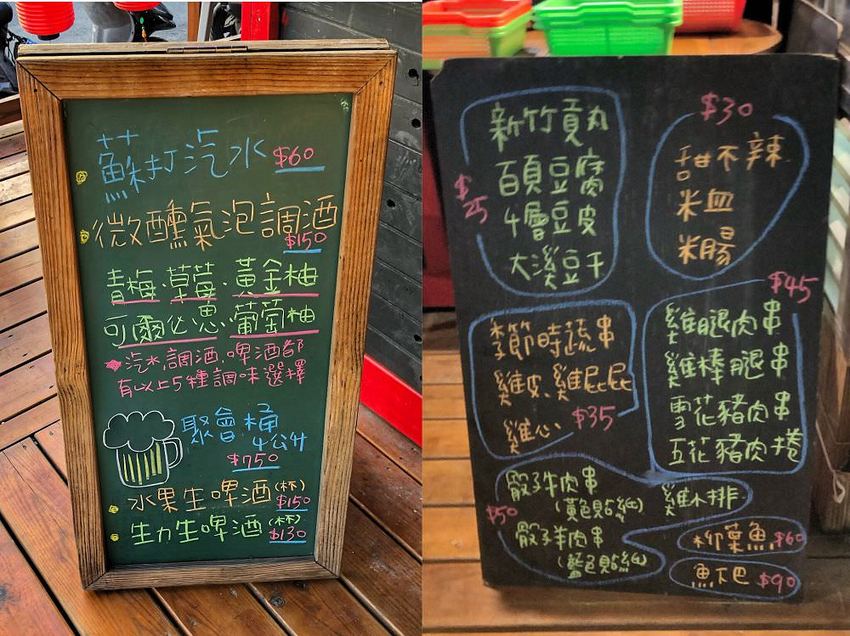 蘇打汽水 $60
微醺氣泡調酒
$150
青梅.草莓.黃金柚
可爾必思.葡萄柚
汽水,調酒,啤酒都
有以上5種調味選擇
聚會桶
4公升
$750
水果生啤酒(杯) $150
生力生啤酒(杯) $130
$25
新竹貢丸
百頁豆腐
4層豆皮
大溪豆干
$30
甜不辣
米血
米腸
季節時蔬串
雞皮、雞屁屁
雞心 $35
$45
雞腿肉串
雞棒腿串
雪花豬肉串
五花豬肉捲
$50
骰子牛肉串
(黃色貼紙)
骰子羊肉串
(藍色貼紙)
雞小排
柳葉魚 $60
魚下巴 $90